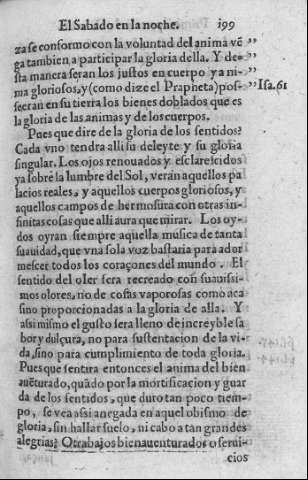 El Sabado en la noche. 199
za se conformo con la voluntad del anima vẽ "
ga tambien a participar la gloria della. Y de- "
sta manera seran los justos en cuerpo y a ni- "
ma gloriosos, y (como dize el Prapheta) pos- " Isa. 61
seeran en su tierra los bienes doblados que es
la gloria de las animas y de los cuerpos.
Pues que dire de la gloria de los sentidos?
Cada vno tendra alli su deleyte y su gloria
singular. Los ojos renouados y esclarecidos
ya sobre la lumbre del Sol, veran aquellos pa
lacios reales, y aquellos cuerpos gloriosos, y
aquellos campos de hermosura con otras in-
finitas cosas que alli aura que mirar. Los oy-
dos oyran siempre aquella musica de tanta
suauidad, que vna sola voz bastaria para ador
mescer todos los coraçones del mundo. El
sentido del oler sera recreado con suauissi-
mos olores, no de cosas vaporosas como aca
sino proporcionadas a la gloria de alla. Y
assi mismo el gusto sera lleno de increyble sa
bor y dulçura, no para sustentacion de la vi-
da, sino para cumplimiento de toda gloria.
Pues que sentira entonces el anima del bien
auẽturado, quãdo por la mortificacion y guar
da de los sentidos, que duro tan poco tiem-
po, se vea assi anegada en aquel abismo de
gloria, sin hallar suelo, ni cabo a tan grandes
alegrias? O trabajos bienauenturados o serui-
cios